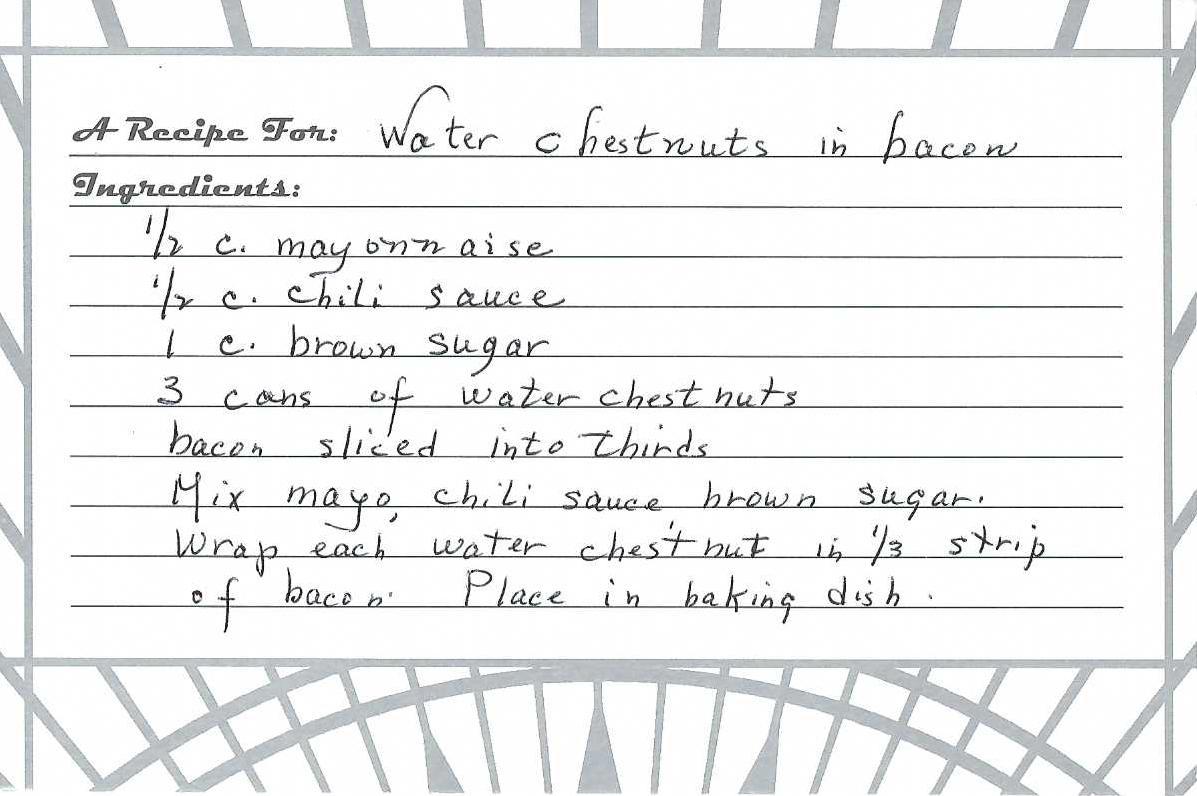 A Recipe For: Water chestnuts in bacon
Ingredients:
1/2 c. mayonnaise
1/2 c. chili sauce
1 c. brown sugar
3 cans of water chestnuts
bacon sliced into thirds
Mix mayo, chili sauce brown sugar.
Wrap each water chestnut in 1/3 strip
of bacon. Place in baking dish.